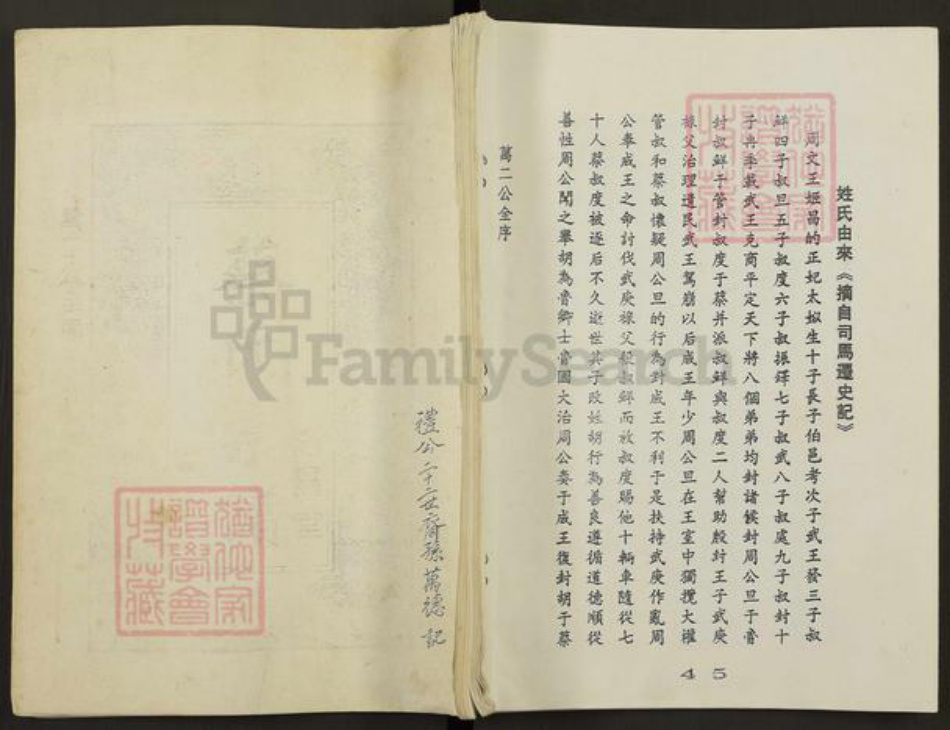 姓氏由來《摘自司馬遷史記》
周文王姬昌的正妃太姒生十子長子伯邑考次子武王發三子叔
鮮四子叔旦五子叔度六子叔振鐸七子叔武八子叔處九子叔封十
子冉季載武王克商平定天下將八個弟弟均封諸候封周公旦于魯
封叔鮮于管封叔度于蔡并派叔鮮與叔度二人幫助殷封王子武庚
祿父治理遺民武王駕崩以后成王年少周公旦在王室中獨攬大權
管叔和蔡叔懷疑周公旦的行為對成王不利于是扶持武庚作亂周
公奉成王之命討伐武庚祿父殺叔鮮而放叔度賜他十輛車隨從七
十人蔡叔度被逐后不久逝世其子改姓胡行為善良遵循道德順從
善性周公聞之舉胡為魯鄉士魯國大治周公委于成王復封胡于蔡
45
萬二公全序
禮公二十二世裔孫萬德記
猶他家
譜學會
收藏
猶他家
譜學會
收藏
FamilySearch